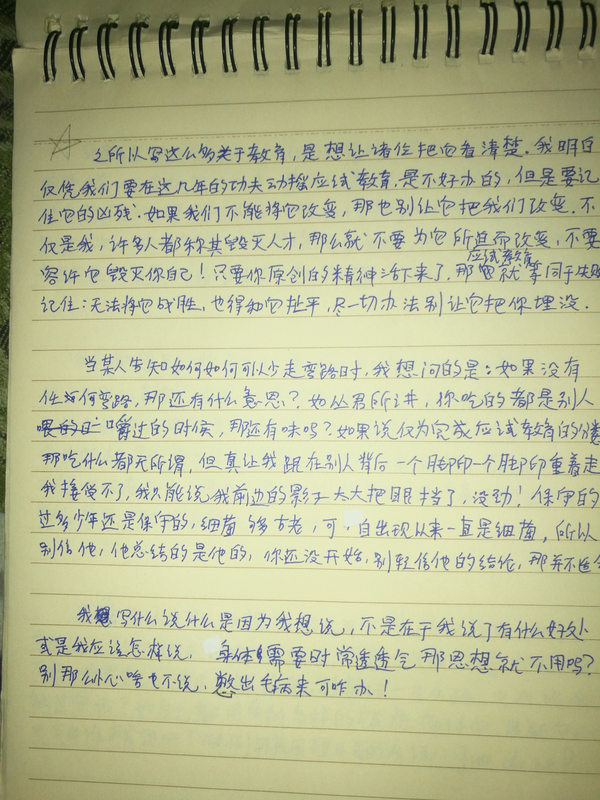 之所以写这么多关于教育,是想让诸位把它看清楚.我明白
仅凭我们要在这几年的功夫动摇应试教育,是不好办的,但是要记
住它的凶残.如果我们不能将它改变,那也别让它把我们改变.不
仅是我,许多人都称其毁灭人才,那么就不要为它所迫而改变,不要
容许它毁灭你自己!只要你原创的精神活下来了,那应试教育就等同于失败
记住:无法将它战胜,也得和它扯平,尽一切办法别让它把你埋没.
当某人告知如何如何可以少走弯路时,我想问的是:如果没有
任何弯路,那还有什么意思?如丛君所讲,你吃的都是别人
嚼过的时候,那还有味吗?如果说仅为完成应试教育的
那吃什么都无所谓,但真让我跟在别人背后一个脚印一个脚印重着走
我接受不了,我只能说我前边的影子太大把眼挡了,没劲!保守的
过多少年还是保守的,细菌够古老,可自出现以来一直是细菌,所以
别信他,他总结的是他的,你还没开始,别轻信他的结论,那并不适合
我想写什么说什么是因为我想说,不是在于我说了有什么好处
或是我应该怎样说,身体需要时常透透气那思想就不用吗?
别那么小心啥也不说,憋出毛病来可咋办!